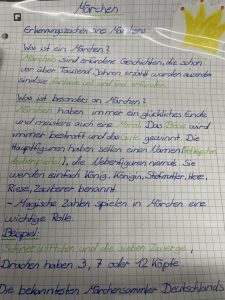 Märchen
Erkennungszeichen eines Märchens:
Was ist ein Märchen?
Märchen sind erfundene Geschichten, die schon
vor über Tausend Jahren erzählt wurden ausserdem
sind sie Fantasie voll und frei erfunden.
Was ist besonders an Märchen?
Märchen haben immer ein glückliches Ende
und meistens auch eine Moral. Das Böse wird
immer bestraft und die Guten gewinnt. Die
Hauptfiguren haben selten einen Namen (Rotkäppchen,
Aschenputtel), die Nebenfiguren niemals. Sie
werden einfach König, Königin, Stiefmutter, Hexe,
Riese, Zauberer benannt.
- Magische Zahlen spielen in Märchen eine
wichtige Rolle.
Beispiel:
Schneewittchen und die sieben Zwerge,
Drachen haben 3, 7 oder 12 Köpfe
Die bekanntesten Märchensammler Deutschlands